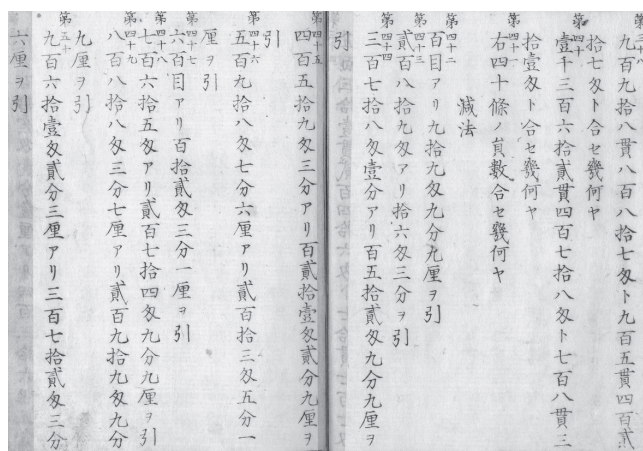 第三十九 九百九拾八貫八百八拾七匁ト九百五貫四百貳
拾七匁ト合セ幾何ヤ
第四十 壹千三百六拾貳貫四百七拾八匁ト七百八貫三
拾壹匁ト合セ幾何ヤ
第四十一 右四十條ノ員數合セ幾何ヤ
減法
第四十二 百目アリ九拾九匁九分九厘ヲ引
第四十三 貳百八拾九匁アリ拾六匁三分ヲ引
第四十四 三百七拾八匁壹分アリ百五拾貳匁九分九厘ヲ
引
第四十五 四百五拾九匁三分アリ百貳拾壹匁貳分九厘ヲ
引
第四十六 五百九拾八匁七分六厘アリ貳百拾三匁五分一
厘ヲ引
第四十七 六百目アリ百拾貳匁三分一厘ヲ引
第四十八 七百六拾五匁アリ貳百七拾四匁九分九厘ヲ引
第四十九 八百八拾八匁三分七厘アリ貳百九拾九匁九分
九厘ヲ引
第五十 九百六拾壹匁貳分三厘アリ三百七拾貳匁三分
六厘ヲ引